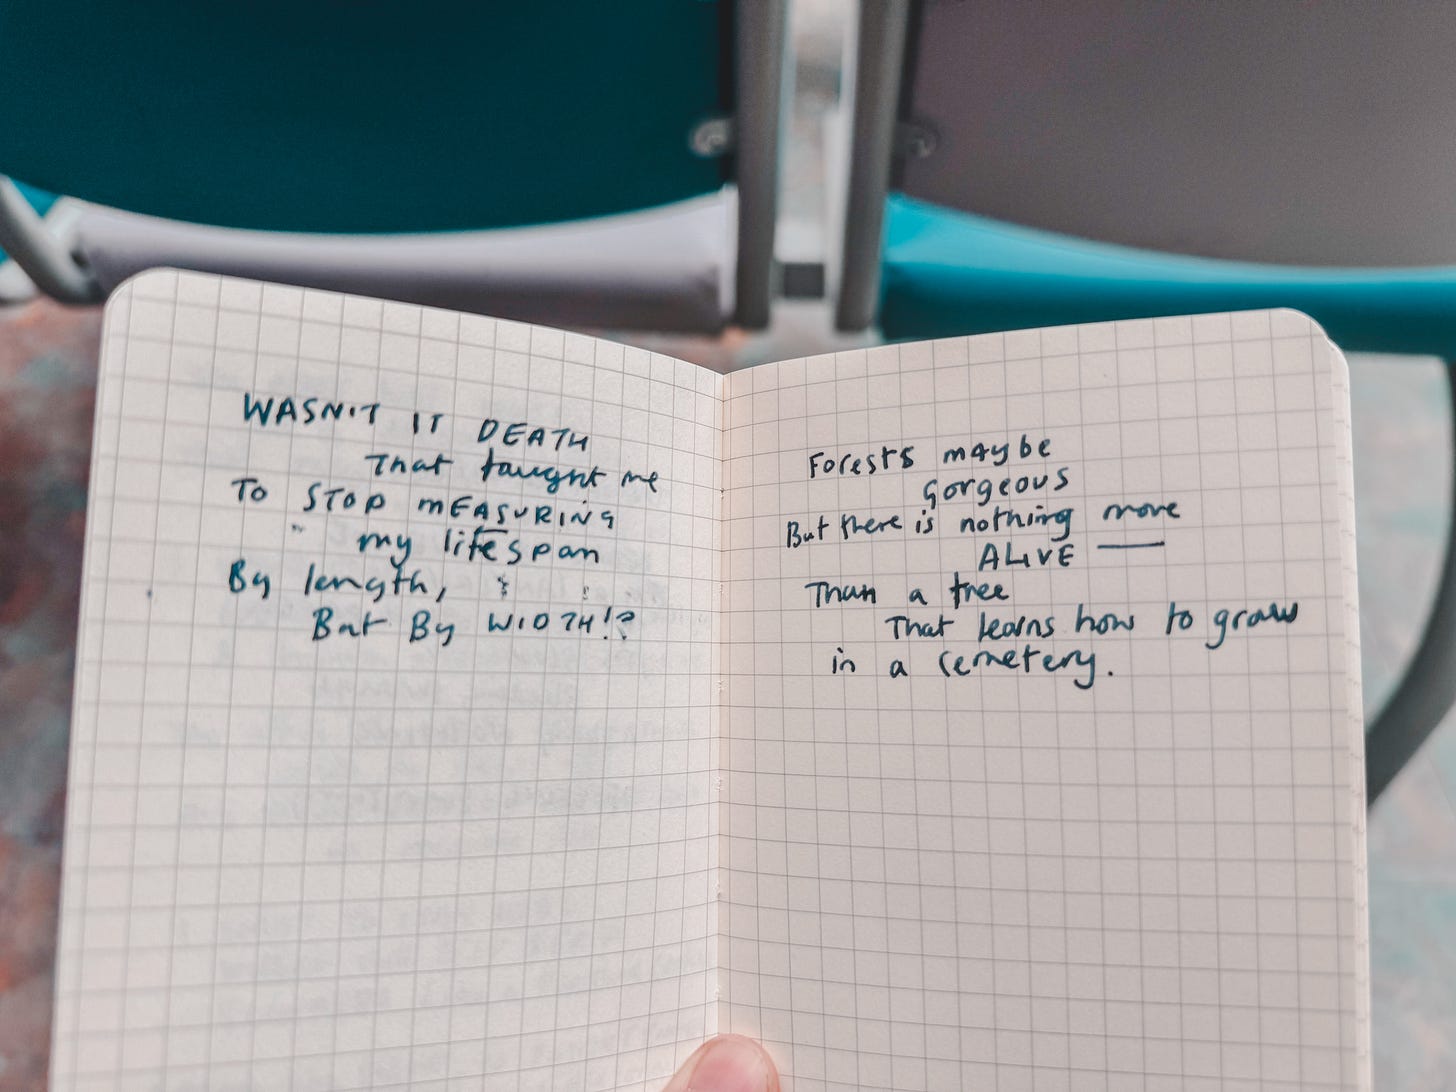 WASN'T IT DEATH
That taught me
To STOP mEASURING
my lifespan
By length,
But By WIDTH!?
Forests maybe
gorgeous
But there is nothing more
ALIVE —
Than a tree
That learns how to grow
in a cemetery.